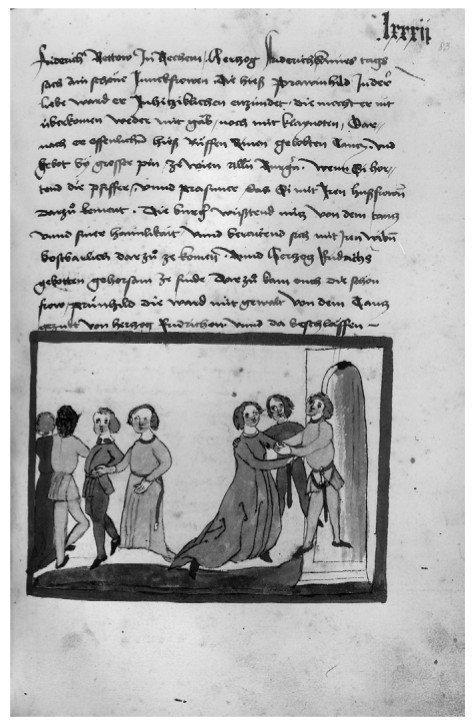 lxxxii
Herzog eines tags
sach ain schöne Junckfrowen die hieß prawnhild In der
liebe ward er Inhitziklichen enzündet, die mecht er nit
überkomen weder mit gab, noch mit klaynoten, Dar-
nach er offenlichen hieß rüffen einen gebotten tancz, vnd
gebot by grosser pin, ze wien allen burgern. Wenn Si hor-
tend die pfiffer, vnnd prosuner das Si mit Iren hußfrowen
darzů kement. Die burger wisstend nütz von dem tantz
vnnd siner haimlikait vnnd beraitend sich mit Iren
kostbarlich dar zů ze komen vnnd Herzog fridrichs
gebotten gehorsam ze sinde Dar zů kam ouch die schon
frow, prünhild die ward mit gewalt von dem Tancz
gezukt von herzog fridrichen vnnd da beschlaffen